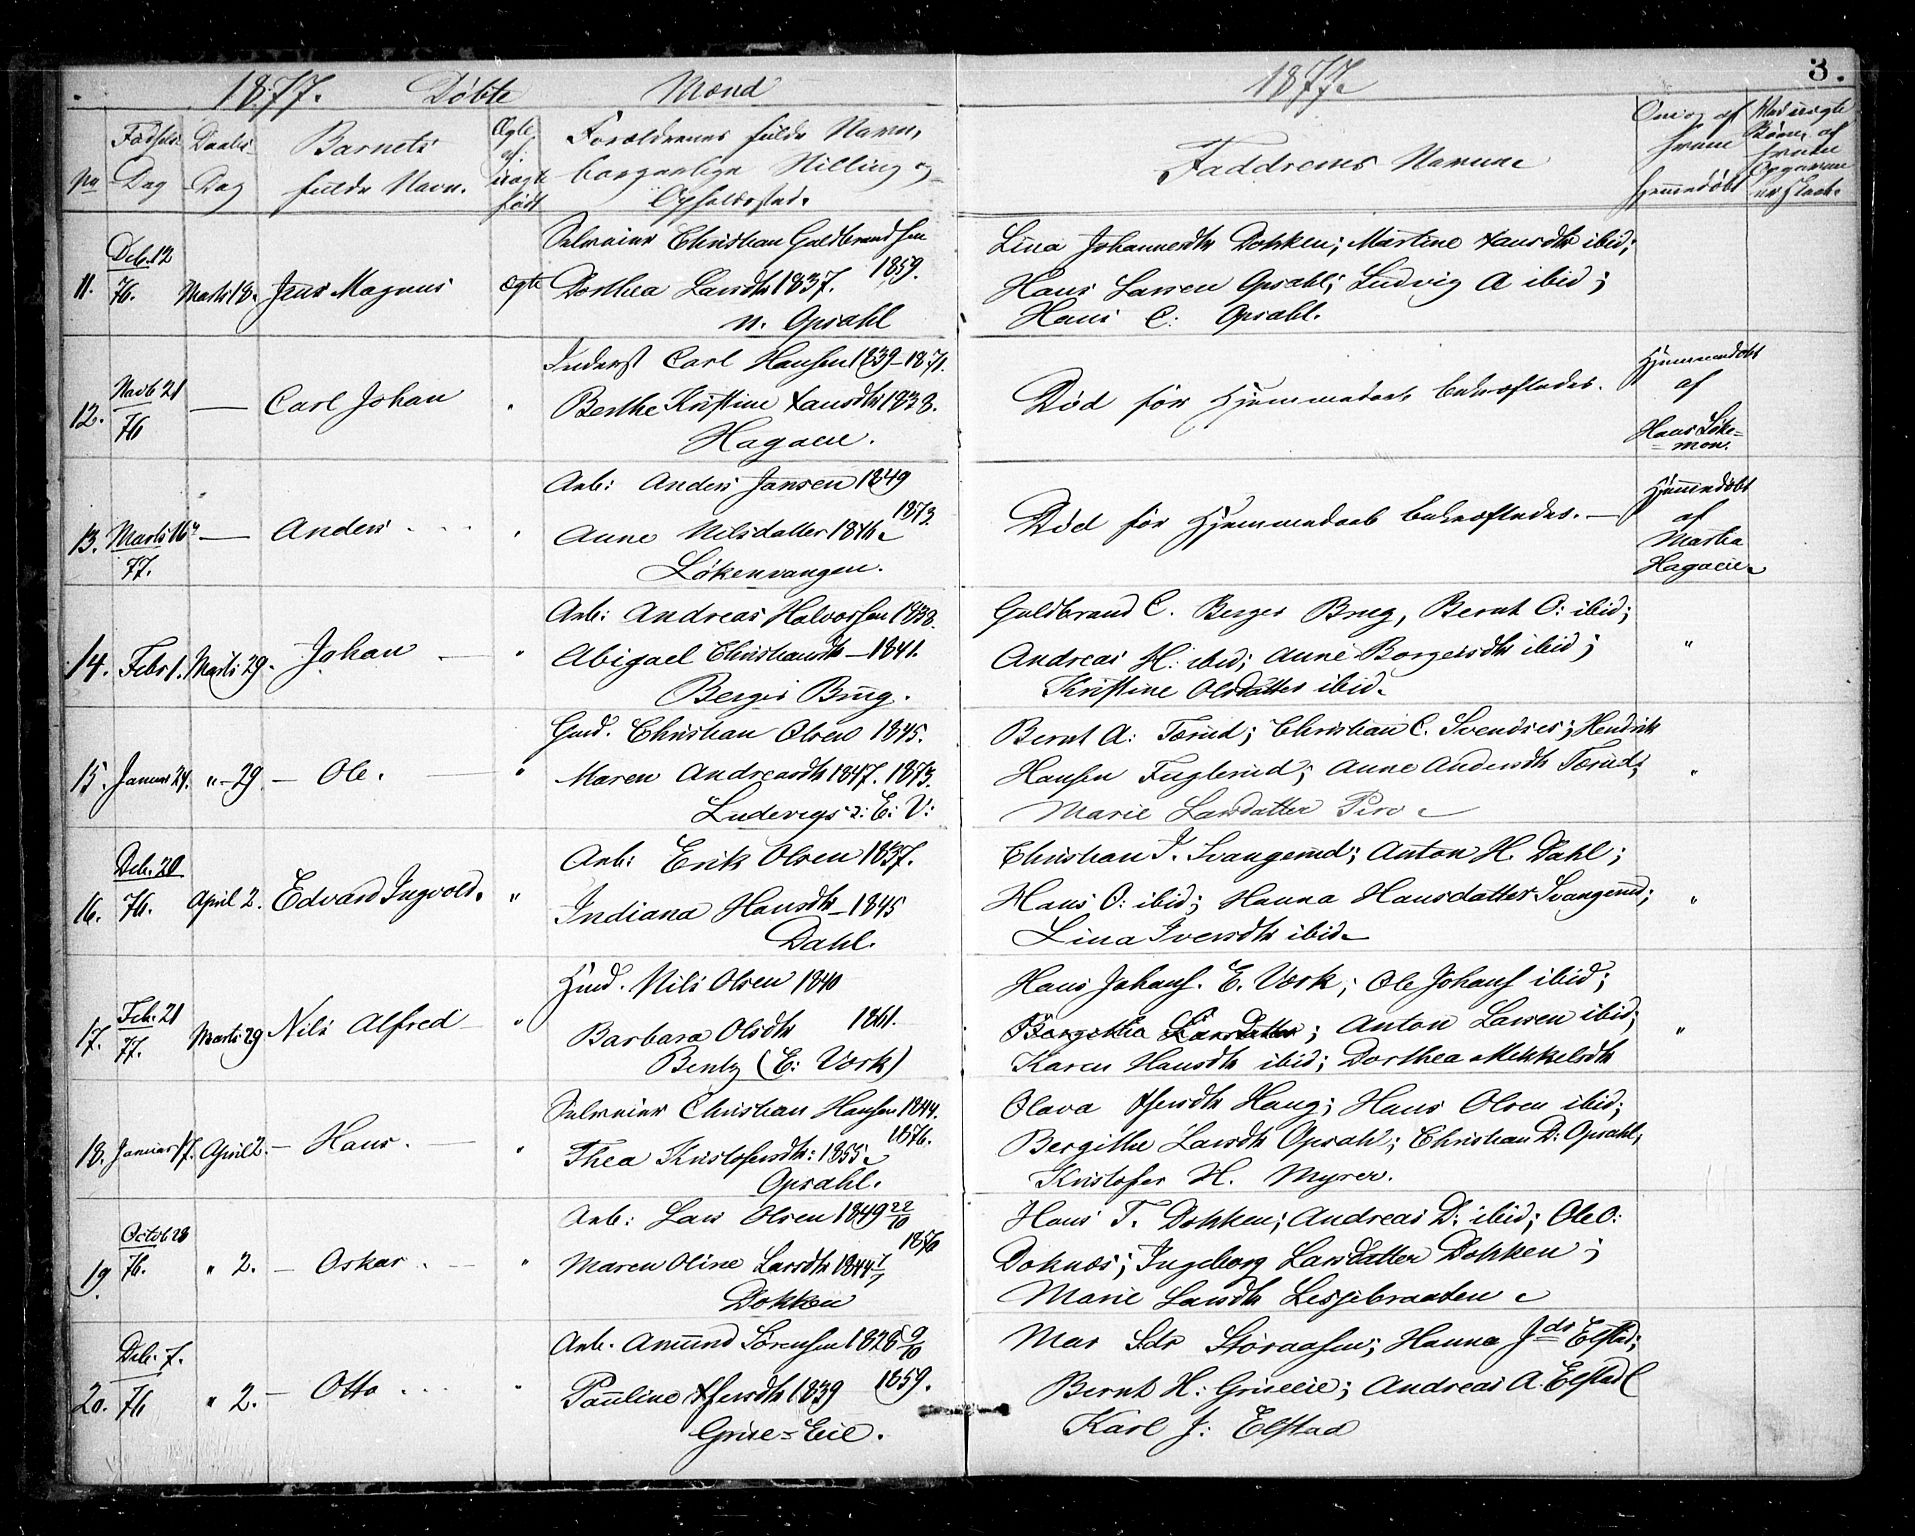 1877. Døbte Mænd
1877.
3.
No
Fødsels-
Dag
Daabs-
Dag
Barnets
fulde Navn.
Ægte
el.
uægte
født
Forældrenes fulde Navn,
borgerlige Stilling og
Opholdssted.
Faddrenes Navne
Om og af
hvem
hjemmedøbt
11. Deb. 12
76. Marts 18. Jens Magnus Ægte
Selveier Christian Guldbrandsen
Dorthea Larsdtr 1837. 1859.
n. Opsahl
Lina Johannesdtr Dokken; Martine Hansdtr ibid;
Hans Larsen Opsahl; Ludvig A ibid;
Hans C: Opsahl.
12. Novb 21
76 — Carl Johan "
Inderst Carl Hansen 1839 - 1871.
Berthe Kristine Hansdtr 1838.
Hagaeie.
Død før Hjemmedaab bekræftedes.
Hjemmedøbt
af
Hans Løke-
mon.
13. Marts 16
77. — Anders "
Arb: Anders Jansen 1849
1873.
Anne Nilsdatter 1846
Løkenvangen.
Død før Hjemmedaab bekræftedes. —
Hjemmedøbt
af
Martha
Hagaeie
14. Febr 1. Marts 29. Johan — "
Arb: Andreas Halvorsen 1838.
Abigael Christiansdtr — 1841.
Berger Brug.
Guldbrand C. Berger Brug, Bernt O: ibid;
Andreas H: ibid; Anne Borgersdtr ibid;
Kristine Olsdatter ibid. "
15. Januar 24. " - 29. — Ole. — "
Gmd. Christian Olsen 1845.
Maren Andreasdtr 1847. 1873.
Ludevigs : E: V:
Bernt A: Tærud; Christian C. Svendsrei; Hendrik
Hansen Fuglerud; Anne Andersdtr Tærud;
Marie Larsdatter "
16. Deb. 20
76. April 2. Edvard Ingvold. "
Arb: Erik Olsen 1837.
Indiana Hansdtr — 1845
Dahl.
Christian J. Svangerud; Anton H. Dahl;
Hans O: ibid; Hanna Hansdatter Svangerud;
Lina Iversdtr ibid. "
17. Feb. 21
77. Marts 29 Nils Alfred — "
Hmd. Nils Olsen 1840
Barbara Olsdtr 1861.
Bentz (E: Værk)
Hans Johans. E. Værk; Ole Johans ibid;
Bergitha Larsdatter; Anton Larsen ibid;
Karen Hansdtr ibid; Dorthea Mikkelsdtr "
18. Januar 17. April 2. — Hans. — "
Selveier Christian Hansen 1844.
1876.
Thea Kristofersdtr: 1855.
Opsahl.
Olava Haug; Hans Olsen ibid;
Bergithe Larsdtr Opsahl; Christian D: Opsahl;
Kristofer H. Myrer.
19. Octob 28
76. " 2. — Oskar. — "
Arb: Lars Olsen 1849 22/10
1876
Maren Oline Larsdtr 1844 1/7
Dokken
Hans T. Dokken; Andreas D: ibid; Ole O:
Doknæs; Ingeborg Larsdatter Dokken;
Marie Larsdtr Lesjebraaten
20. Deb. 7.
76 " 2. — Otto "
Arb. Amund Sørensen 1828 9/10
Pauline 1839 1859.
Grue-Eie.
Mar Sdr Støraasen; Hanna Jdr Elstad;
Bernt H: Grueeie; Andreas A. Elstad
Karl J: Elstad